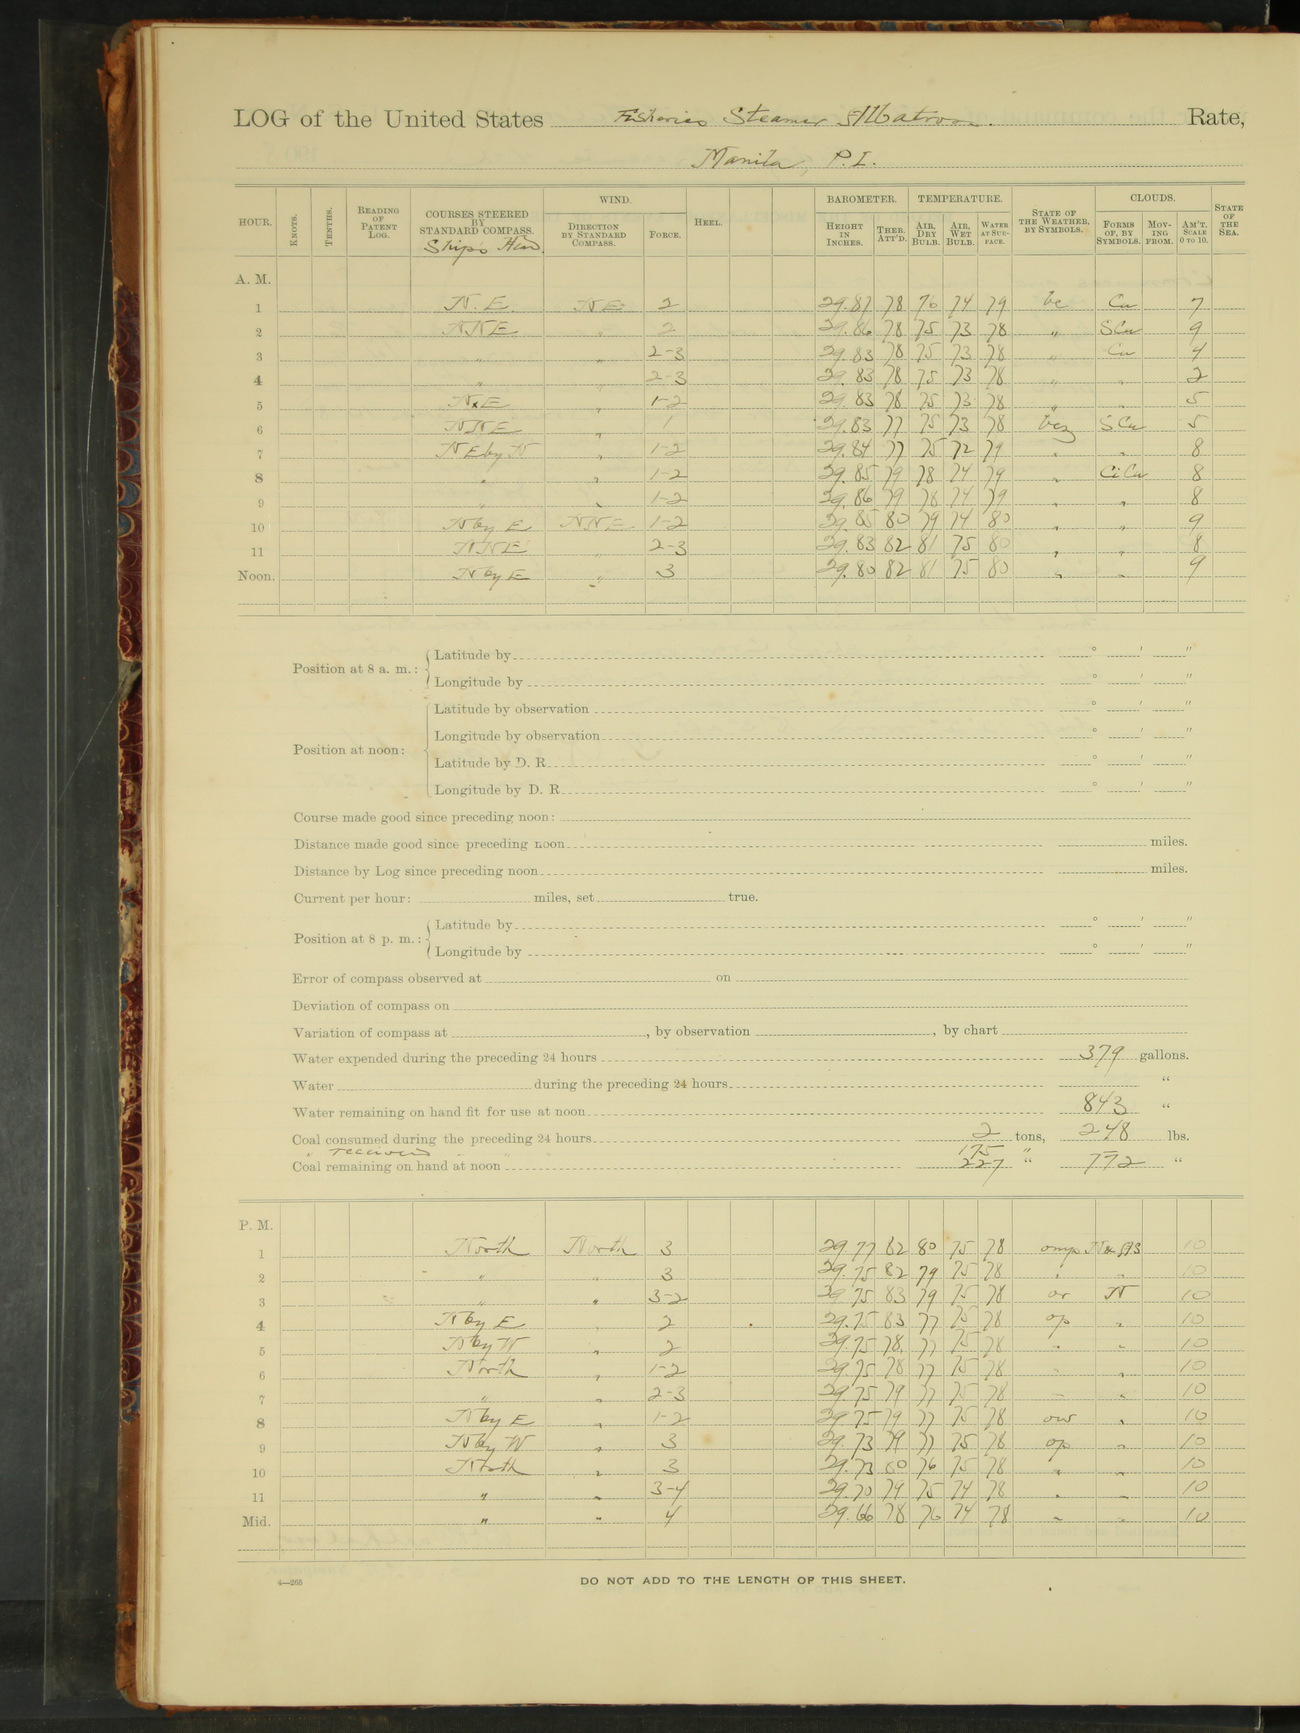 LOG of the United States Fisheries Steamer Albatross. Rate,
Manila, P.I.
HOUR. KNOTS. TENTHS. READING OF PATENT LOG. COURSES STEERED BY STANDARD COMPASS. WIND. DIRECTION BY STANDARD COMPASS. FORCE. HEEL. BAROMETER. HEIGHT IN INCHES. THER. ATT'D. TEMPERATURE. AIR, DRY BULB. AIR, WET BULB. WATER AT SURFACE. STATE OF THE WEATHER, BY SYMBOLS. CLOUDS. FORMS OF, BY SYMBOLS. MOVING FROM. AM'T. SCALE 0 TO 10. STATE OF THE SEA.
Ship's Head
A. M.
1 N.E. NE 2 29.87 78 76 74 79 bc Cu 7
2 NNE " 2 29.86 78 75 73 78 " SCu 9
3 " " 2-3 29.83 78 75 73 78 " Cu 4
4 " " 2-3 29.83 78 75 73 78 " " 2
5 NxE " 1-2 29.83 78 75 73 78 " " 5
6 NNE " 1 29.83 77 75 73 78 bcz SCu 5
7 NEbyN " 1-2 29.84 77 75 72 79 " " 8
8 " " 1-2 29.85 79 78 74 79 " CiCu 8
9 " " 1-2 29.86 79 78 74 79 " " 8
10 Nby E NNE 1-2 29.85 80 79 74 80 " " 9
11 NNE " 2-3 29.83 82 81 75 80 " " 8
Noon. NbyE " 3 29.80 82 81 75 80 " " 9
Position at 8 a. m.: Latitude by ° ' "
Longitude by ° ' "
Latitude by observation ° ' "
Longitude by observation ° ' "
Position at noon:
Latitude by D. R. ° ' "
Longitude by D. R. ° ' "
Course made good since preceding noon:
Distance made good since preceding noon miles.
Distance by Log since preceding noon miles.
Current per hour: miles, set true.
Position at 8 p. m.: Latitude by ° ' "
Longitude by ° ' "
Error of compass observed at on
Deviation of compass on
Variation of compass at , by observation , by chart
Water expended during the preceding 24 hours 379 gallons.
Water during the preceding 24 hours "
Water remaining on hand fit for use at noon 843 "
Coal consumed during the preceding 24 hours 2 tons, 248 lbs.
" received " " 175 " –
Coal remaining on hand at noon 227 " 772 "
P. M.
1 North North 3 29.77 82 80 75 78 10
2 " " 3 29.75 82 79 75 78 " " 10
3 " " 3-2 29.75 83 79 75 78 or N 10
4 Nby E " 2 29.75 83 77 75 78 op " 10
5 Nby W " 2 29.75 78 77 75 78 " " 10
6 North " 1-2 29.75 78 77 75 78 " " 10
7 " " 2-3 29.75 79 77 75 78 " " 10
8 Nby E " 1-2 29.75 79 77 75 78 " 10
9 Nby W " 3 29.73 79 77 75 78 op " 10
10 North " 3 29.73 80 76 75 78 " " 10
11 " " 3-4 29.70 79 75 74 78 " " 10
Mid. " " 4 29.66 78 76 74 78 " " 10
4—265
DO NOT ADD TO THE LENGTH OF THIS SHEET.